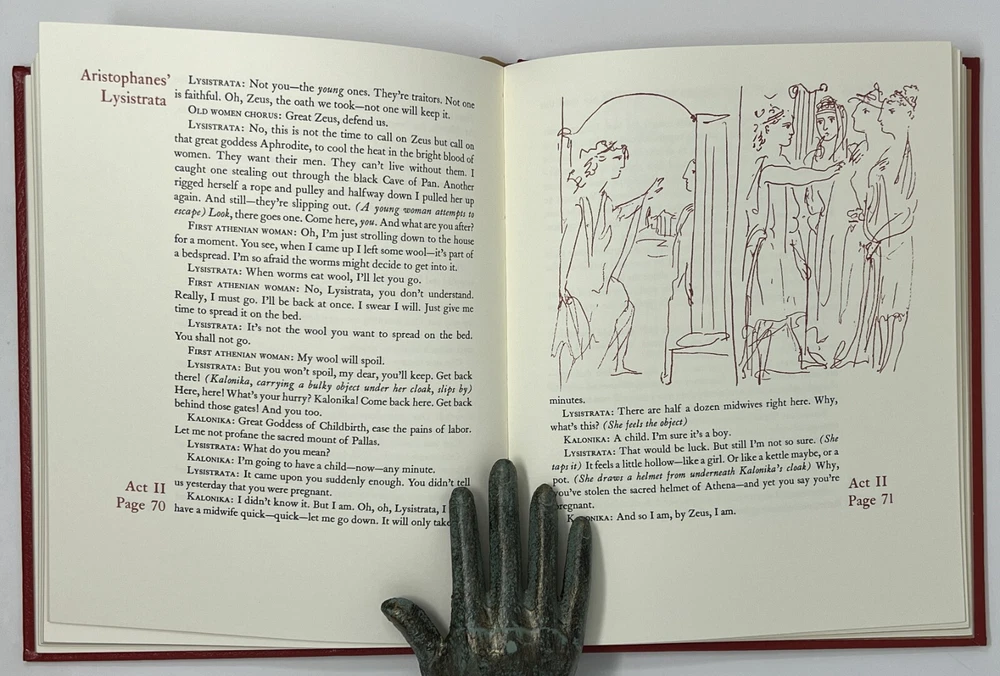 Aristophanes'
Lysistrata
Lysistrata: Not you—the young ones. They're traitors. Not one
is faithful. Oh, Zeus, the oath we took—not one will keep it.
Old women chorus: Great Zeus, defend us.
Lysistrata: No, this is not the time to call on Zeus but call on
that great goddess Aphrodite, to cool the heat in the bright blood of
women. They want their men. They can't live without them. I
caught one stealing out through the black Cave of Pan. Another
rigged herself a rope and pulley and halfway down I pulled her up
again. And still—they're slipping out. (A young woman attempts to
escape) Look, there goes one. Come here, you. And what are you after?
First Athenian woman: Oh, I'm just strolling down to the house
for a moment. You see, when I came up I left some wool—it's part of
a bedspread. I'm so afraid the worms might decide to get into it.
Lysistrata: When worms eat wool, I'll let you go.
First Athenian woman: No, Lysistrata, you don't understand.
Really, I must go. I'll be back at once. I swear I will. Just give me
time to spread it on the bed.
Lysistrata: It's not the wool you want to spread on the bed.
You shall not go.
First Athenian woman: My wool will spoil.
Lysistrata: But you won't spoil, my dear, you'll keep. Get back
there! (Kalonika, carrying a bulky object under her cloak, slips by)
Here, here! What's your hurry? Kalonika! Come back here. Get back
behind those gates! And you too.
Kalonika: Great Goddess of Childbirth, ease the pains of labor.
Let me not profane the sacred mount of Pallas.
Lysistrata: What do you mean?
Kalonika: I'm going to have a child—now—any minute.
Lysistrata: It came upon you suddenly enough. You didn't tell
us yesterday that you were pregnant.
Kalonika: I didn't know it. But I am. Oh, oh, Lysistrata, I
have a midwife quick—quick—let me go down. It will only take
Act II
Page 70
minutes.
Lysistrata: There are half a dozen midwives right here. Why,
what's this? (She feels the object)
Kalonika: A child. I'm sure it's a boy.
Lysistrata: That would be luck. But still I'm not so sure. (She
taps it) It feels a little hollow—like a girl. Or like a kettle maybe, or a
pot. (She draws a helmet from underneath Kalonika's cloak) Why,
you've stolen the sacred helmet of Athena—and yet you say you're
pregnant.
Kalonika: And so I am, by Zeus, I am.
Act II
Page 71